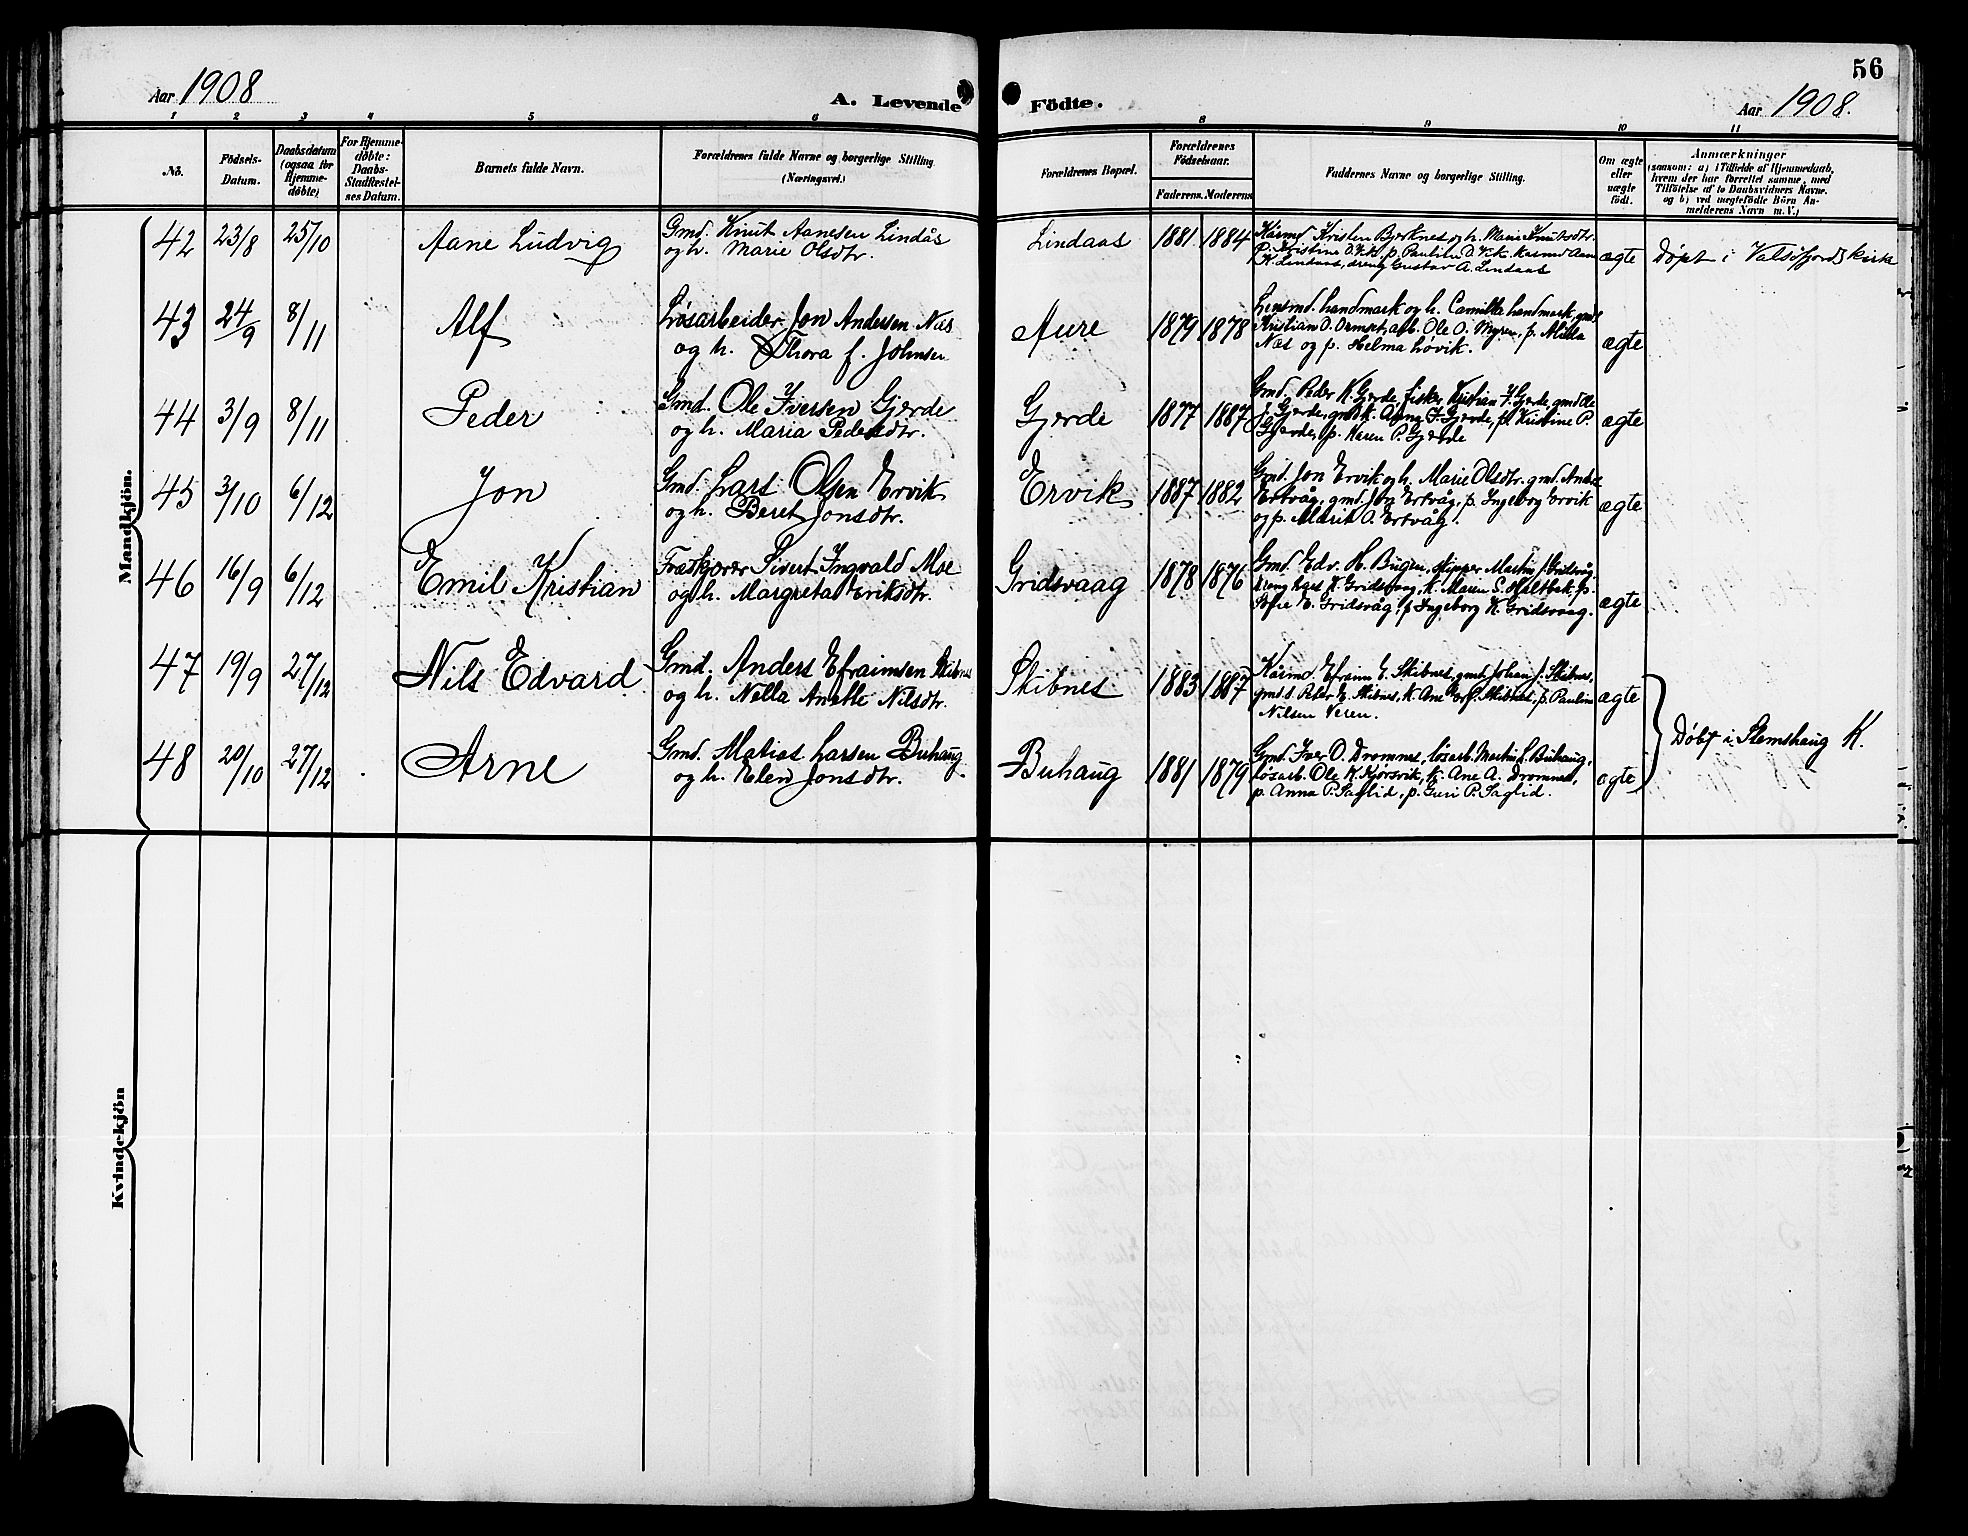 56
Aar 1908
A. Levende
Födte.
Aar 1908.
1 2 3 4 5 6 8 9 10 11
No.
Födsels-
Datum.
Daabsdatum
(ogsaa for
Hjemme-
döbte)
For Hjemme-
döbte:
Daabs-
Stadfæstel-
ses Datum.
Barnets fulde Navn.
Forældrenes fulde Navne og borgerlige Stilling.
(Næringsvei.)
Forældrenes Bopæl.
Forældrenes
Födselsaar.
Faderens. Moderens
Faddernes Navne og borgerlige Stilling.
Om ægte
eller
uægte
födt.
Anmærkninger
(saasom: a) i Tilfælde af Hjemmedaab,
hvem der har forrettet samme, med
Tilföielse af to Daabsvidners Navne.
og b) ved uægtefödte Börn An-
melderens Navn m. V.)
Mandkjön.
42 23/8 25/10
Aane Ludvig
Gmd. Knut Aanesen Lindås
og h. Marie Olsdtr.
Lindaas
1881 1884
Kårmd Kristen Bjerknes og h. Marie Knutsdtr.
P. Kristine O. Vik, p. Pauline O. Vik. Kasmd Aane
K. Lindaas, dreng Gustav A. Lindaas
ægte
Døpt i Valsøfjords kirke
43 24/9 8/11
Alf
Løsarbeider Jon Andersen Næs
og h. Thora f. Johnsen
Aure
1879 1878
Lensmd. Landmark og h. Camilla Landmark, gmd.
Kristian O. Ormset, arb. Ole O. Myren, p. Milla
Næs og p. Helma Løvik.
ægte
44 3/9 8/11
Peder
Gmd. Ole Iversen Gjerde
og h. Maria Pedersdtr.
Gjerde
1877 1887
Gmd. Peder K. Gjerde, fisker Kristian I. Gjerde, gmd Ole
J. Gjerde, gmdk. Anna J. Gjerde, p. Kristine P.
Gjerde, p. Karen P. Gjerde
ægte
45 3/10 6/12
Jon
Gmd. Lars Olsen Ervik
og h. Beret Jonsdtr.
Ervik
1887 1882
Gmd. Jon Ervik og h. Marie Olsdtr. gmd. Anders
Ertvåg, gmd. Jon Ertvåg, p. Ingeborg Ervik
og p. Marit O. Ertvåg.
ægte
46 16/9 6/12
Emil Kristian
Sivert Ingvald Moe
og h. Margreta Eriksdtr.
Gridsvaag
1878 1876
Gmd. Edv. H. Bugen, skipper Martin Gridsvåg,
dreng Lars K. Gridsvaag, k. Maren S. Holtbak, p.
Sofie E. Gridsvåg, p. Ingeborg K. Gridsvaag.
ægte
47 19/9 27/12
Nils Edvard
Gmd. Anders Efraimsen Skibnes
og h. Nella Anette Nilsdtr.
Skibnes
1883 1887
Kårmd. Efraim E. Skibnes, gmd. Johan J. Skibnes,
gmd. Peter E. Skibnes, k. Ane Skibnes, p. Pauline
Nilsen Veren.
ægte
Døbt i Stemshaug K.
48 20/10 27/12
Arne
Gmd. Matias Larsen Buhaug
og h. Elen Jonsdtr.
Buhaug
1881 1879
Gmd. Iver O. Dromnes, løsarb. Martin L. Buhaug,
løsarb. Ole K. Kjørsvik, k. Ane A. Dromnes,
p. Anna P. Saglid, p. Guri P. Saglid.
ægte
Kvindekjön